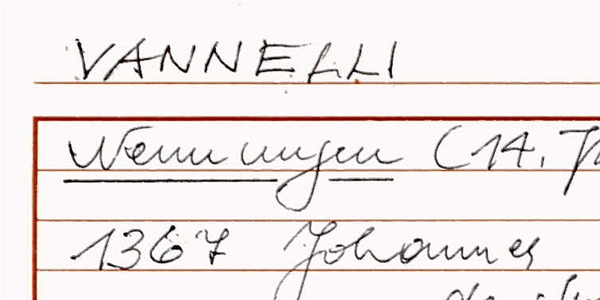 VANNELLI
Wennungen (14. Jh
1367 Johannes